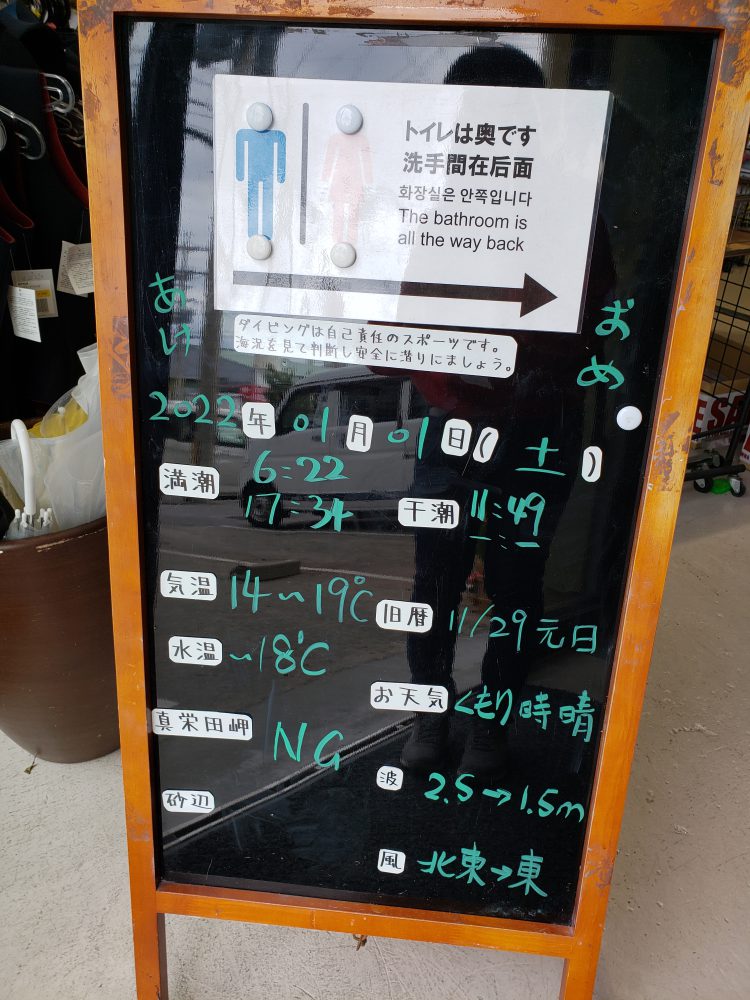 トイレは奥です
洗手間在后面
화장실은 안쪽입니다
The bathroom is
all the way back
あけ
おめ
ダイビングは自己責任のスポーツです。
海況を見て判断し安全に潜りにましょう。
2022年 01月 01日( 土 )
満潮 6:22
17:34
干潮 11:49
-:-
気温 14~19℃
旧暦 11/29 元日
水温 ~18℃
お天気 くもり時晴
真栄田岬 NG
波 2.5→1.5m
砂辺
風 北東→東
SA